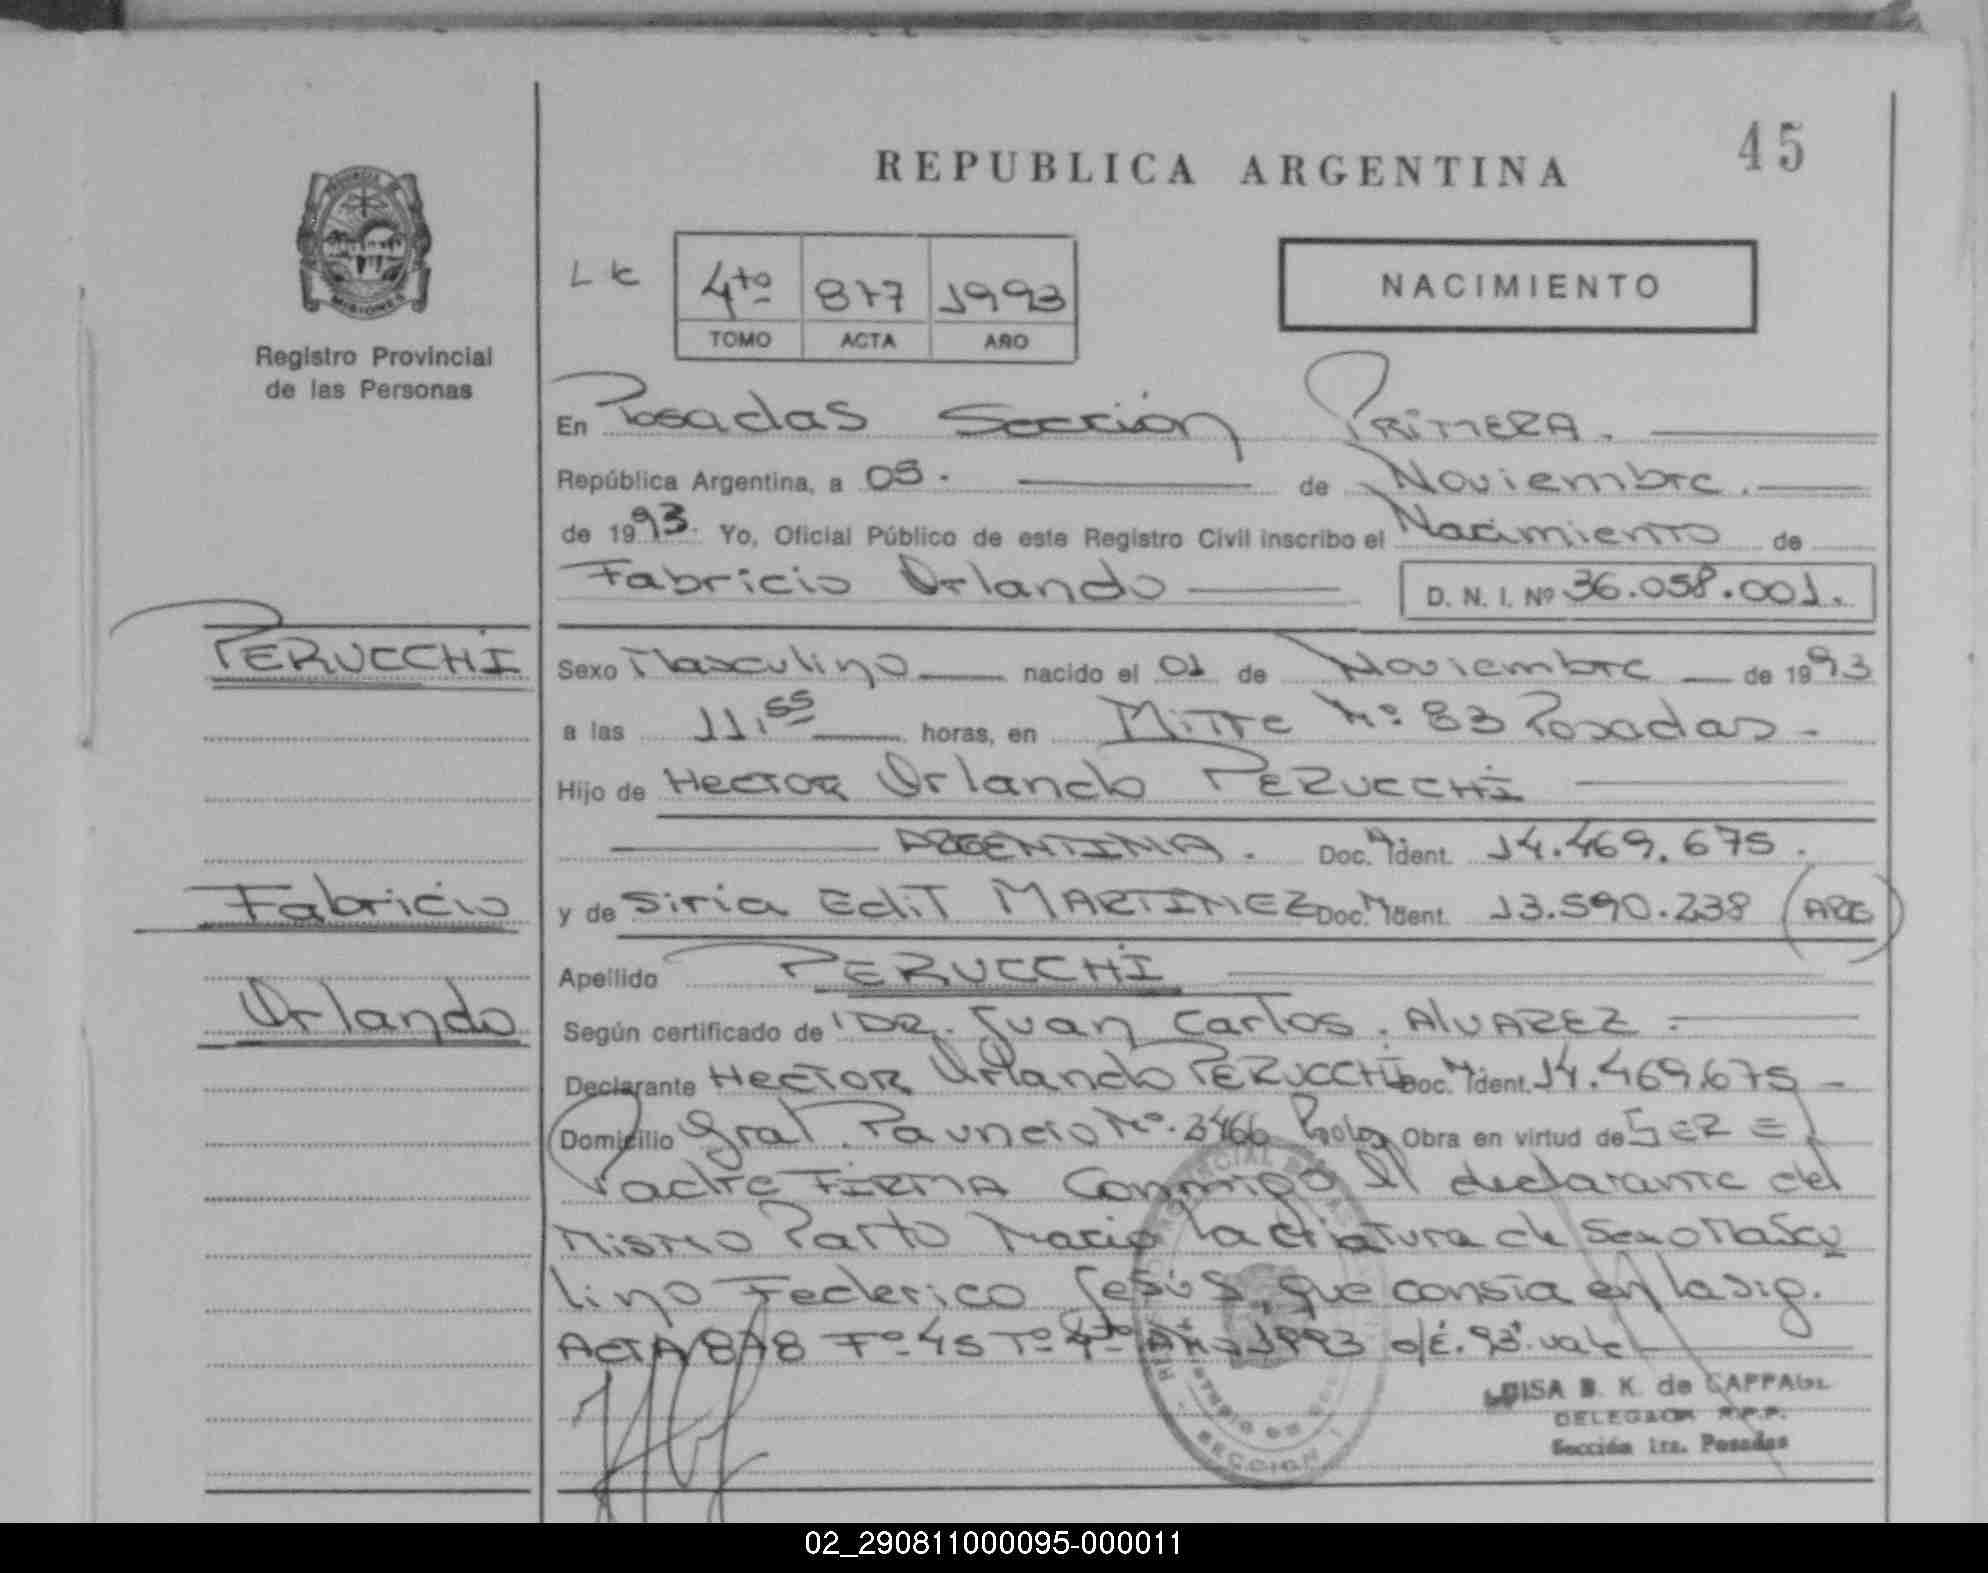 45
REPUBLICA ARGENTINA
PROVINCIA DE
MISIONES
Registro Provincial
de las Personas
4to 877 1993
TOMO ACTA AÑO
NACIMIENTO
En Posadas Sección PRIMERA.
República Argentina, a 05. de Noviembre.
de 1993. Yo, Oficial Público de este Registro Civil inscribo el Nacimiento de
Fabricio Orlando D. N. I. Nº 36.058.001.
PERUCCHI
Sexo Masculino nacido el 01 de Noviembre de 1993
a las 11,55 horas, en Mitre Nº 83 Posadas -
Hijo de Hector Orlando PERUCCHI
ARGENTINA. Doc. N Ident. 14.469.675.
Fabricio
y de Siria Edit MARTINEZ Doc. N Ident. 13.590.238 (ARG)
Apellido PERUCCHI
Orlando
Según certificado de DR. Juan Carlos. ALVAREZ.
Declarante Hector Orlando PERUCCHI Doc. N Ident. 14.469.675 -
Domicilio Gral. Paunero Nº. 3466 Obra en virtud de SER el
Padre FIRMA Conmigo El declarante del
Mismo Parto Nacio la criatura de Sexo Mascu
lino Federico Jesús, que consta en la sig.
ACTA 878 Fº 45 Tº 4to Año 1993 o/é. 93. vale
LUISA B. K. de CAPPAGL
DELEGADA R.P.P.
Sección 1ra. Posadas
SECCION 1
02_290811000095-000011